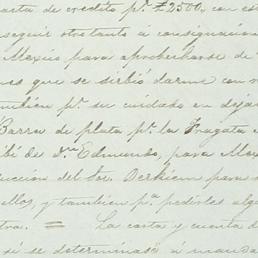 carta de credito pr. £2500, con est
seguir otro tanto a consignacion
Mexico para aprobecharse de
nes que se sirbió darme con r
mbien pr. su cuidado en dejar
Barra de plata pr. la Fragata
ibí de Dn. Edmundo, para Mex
uccion del Sor. Berkiem para
ellos, y tambien pa. pedirles alg
tra. = La carta y cuenta d
si se determinase á manda